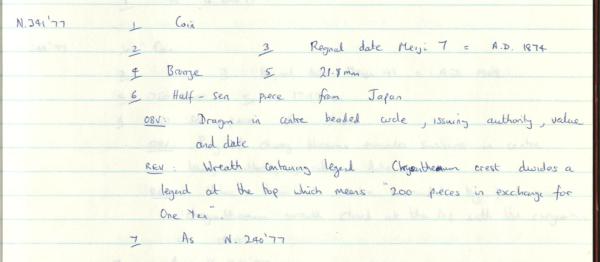 N.341'77 1 Coin
2 3 Regnal date Meiji 7 = A.D. 1874
4 Bronze 5 21.8 mm
6 Half-sen piece from Japan
OBV: Dragon in centre beaded circle, issuing authority, value
and date
REV: Wreath containing legend Chrysanthemum crest divides a
legend at the top which means "200 pieces in exchange for
One Yen".
7 As N.240'77